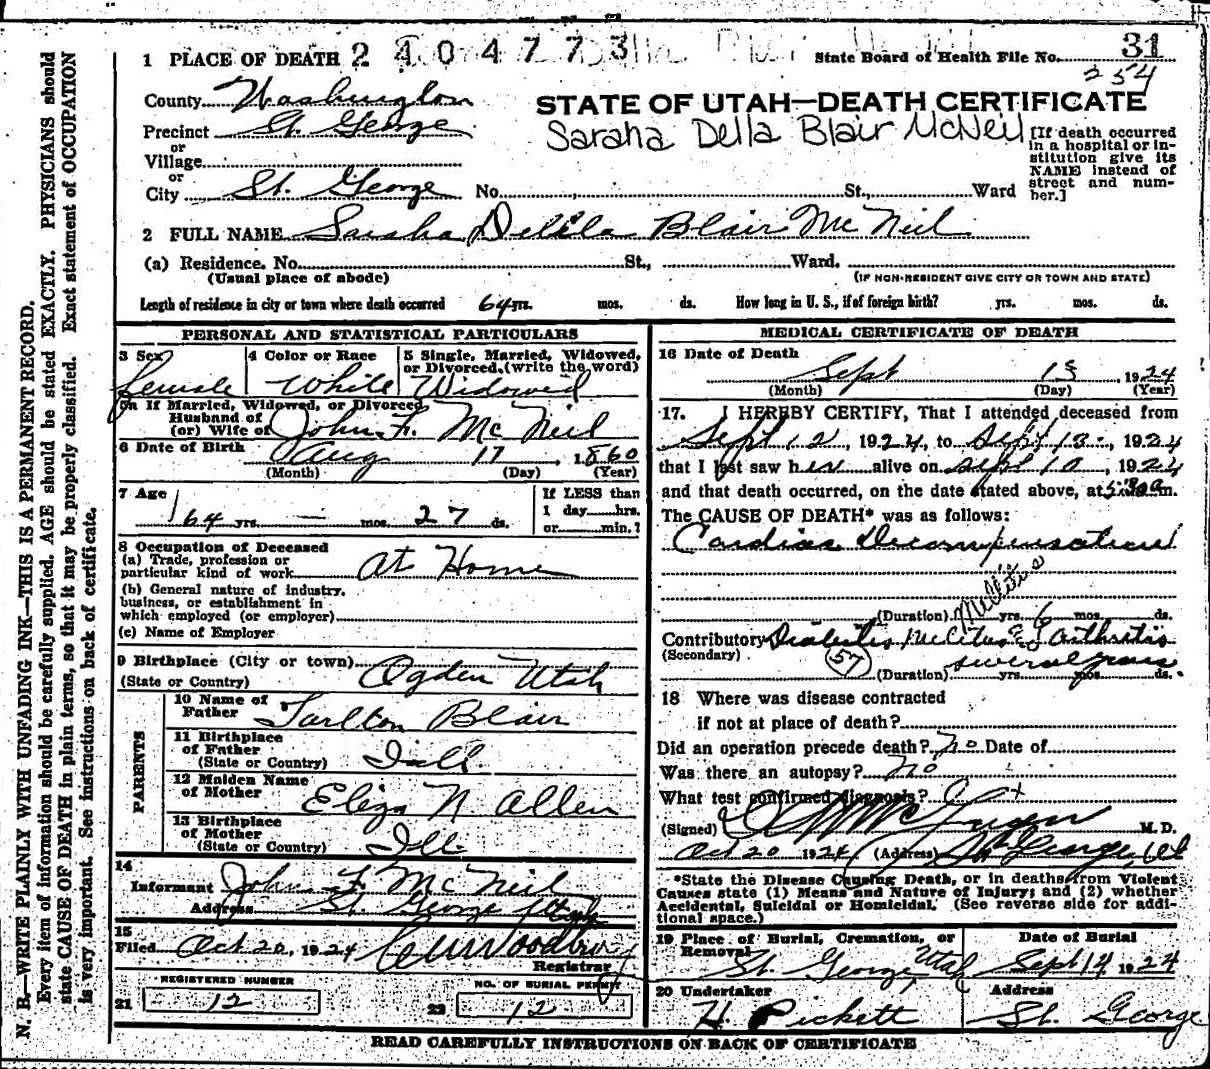 1 PLACE OF DEATH 2404773 State Board of Health File No. 31
254
County Washington
STATE OF UTAH—DEATH CERTIFICATE
Precinct St. George
Saraha Della Blair McNeil
or
Village
or
City St. George No. St., Ward
[If death occurred
in a hospital or in-
stitution give its
NAME instead of
street and num-
ber.]
2 FULL NAME Saraha Delila Blair McNeil
(a) Residence. No. St., Ward.
(Usual place of abode) (IF NON-RESIDENT GIVE CITY OR TOWN AND STATE)
Length of residence in city or town where death occurred 64 yrs. mos. ds. How long in U. S., if of foreign birth? yrs. mos. ds.
PERSONAL AND STATISTICAL PARTICULARS
3 Sex 4 Color or Race 5 Single, Married, Widowed,
or Divorced. (write the word)
female White Widowed
5a If Married, Widowed, or Divorced
Husband of
(or) Wife of John F. McNeil
6 Date of Birth Aug 17, 1860
(Month) (Day) (Year)
7 Age If LESS than
64 yrs. — mos. 27 ds. 1 day hrs.
or min.?
8 Occupation of Deceased
(a) Trade, profession or
particular kind of work At Home
(b) General nature of industry,
business, or establishment in
which employed (or employer)
(c) Name of Employer
9 Birthplace (City or town) Ogden Utah
(State or Country)
PARENTS
10 Name of
Father Tarlton Blair
11 Birthplace
of Father
(State or Country) Ill.
12 Maiden Name
of Mother Eliza N Allen
13 Birthplace
of Mother
(State or Country) Ill.
14
Informant John F. McNeil
Address St. George Utah
15
Filed Oct 20, 1924 Woodbury
Registrar
REGISTERED NUMBER NO. OF BURIAL PERMIT
21 12 22 12
MEDICAL CERTIFICATE OF DEATH
16 Date of Death
Sept 13, 1924
(Month) (Day) (Year)
17. I HEREBY CERTIFY, That I attended deceased from
Sept 12, 1924, to Sept 1, 1924
that I last saw her alive on Sept 10, 1924
and that death occurred, on the date stated above, at 5:30 a m.
The CAUSE OF DEATH* was as follows:
Cardiac Decompensation
Mellitis
(Duration) yrs. 6 mos. ds.
Contributory Diabetis Melitus & Arthritis
(Secondary) 57 several years
(Duration) yrs. mos. ds.
18 Where was disease contracted
if not at place of death?
Did an operation precede death? No Date of
Was there an autopsy? No
What test confirmed diagnosis?
(Signed) M. D.
Oct 20 1924 (Address) St George Ut
*State the Disease Causing Death, or in deaths from Violent
Causes state (1) Means and Nature of Injury; and (2) whether
Accidental, Suicidal or Homicidal. (See reverse side for addi-
tional space.)
19 Place of Burial, Cremation, or
Removal Date of Burial
St. George, Utah Sept 14 1924
20 Undertaker Address
H. Pickett St. George
READ CAREFULLY INSTRUCTIONS ON BACK OF CERTIFICATE
N. B.—WRITE PLAINLY WITH UNFADING INK—THIS IS A PERMANENT RECORD.
Every item of information should be carefully supplied. AGE should be stated EXACTLY. PHYSICIANS should
state CAUSE OF DEATH in plain terms, so that it may be properly classified. Exact statement of OCCUPATION
is very important. See instructions on back of certificate.